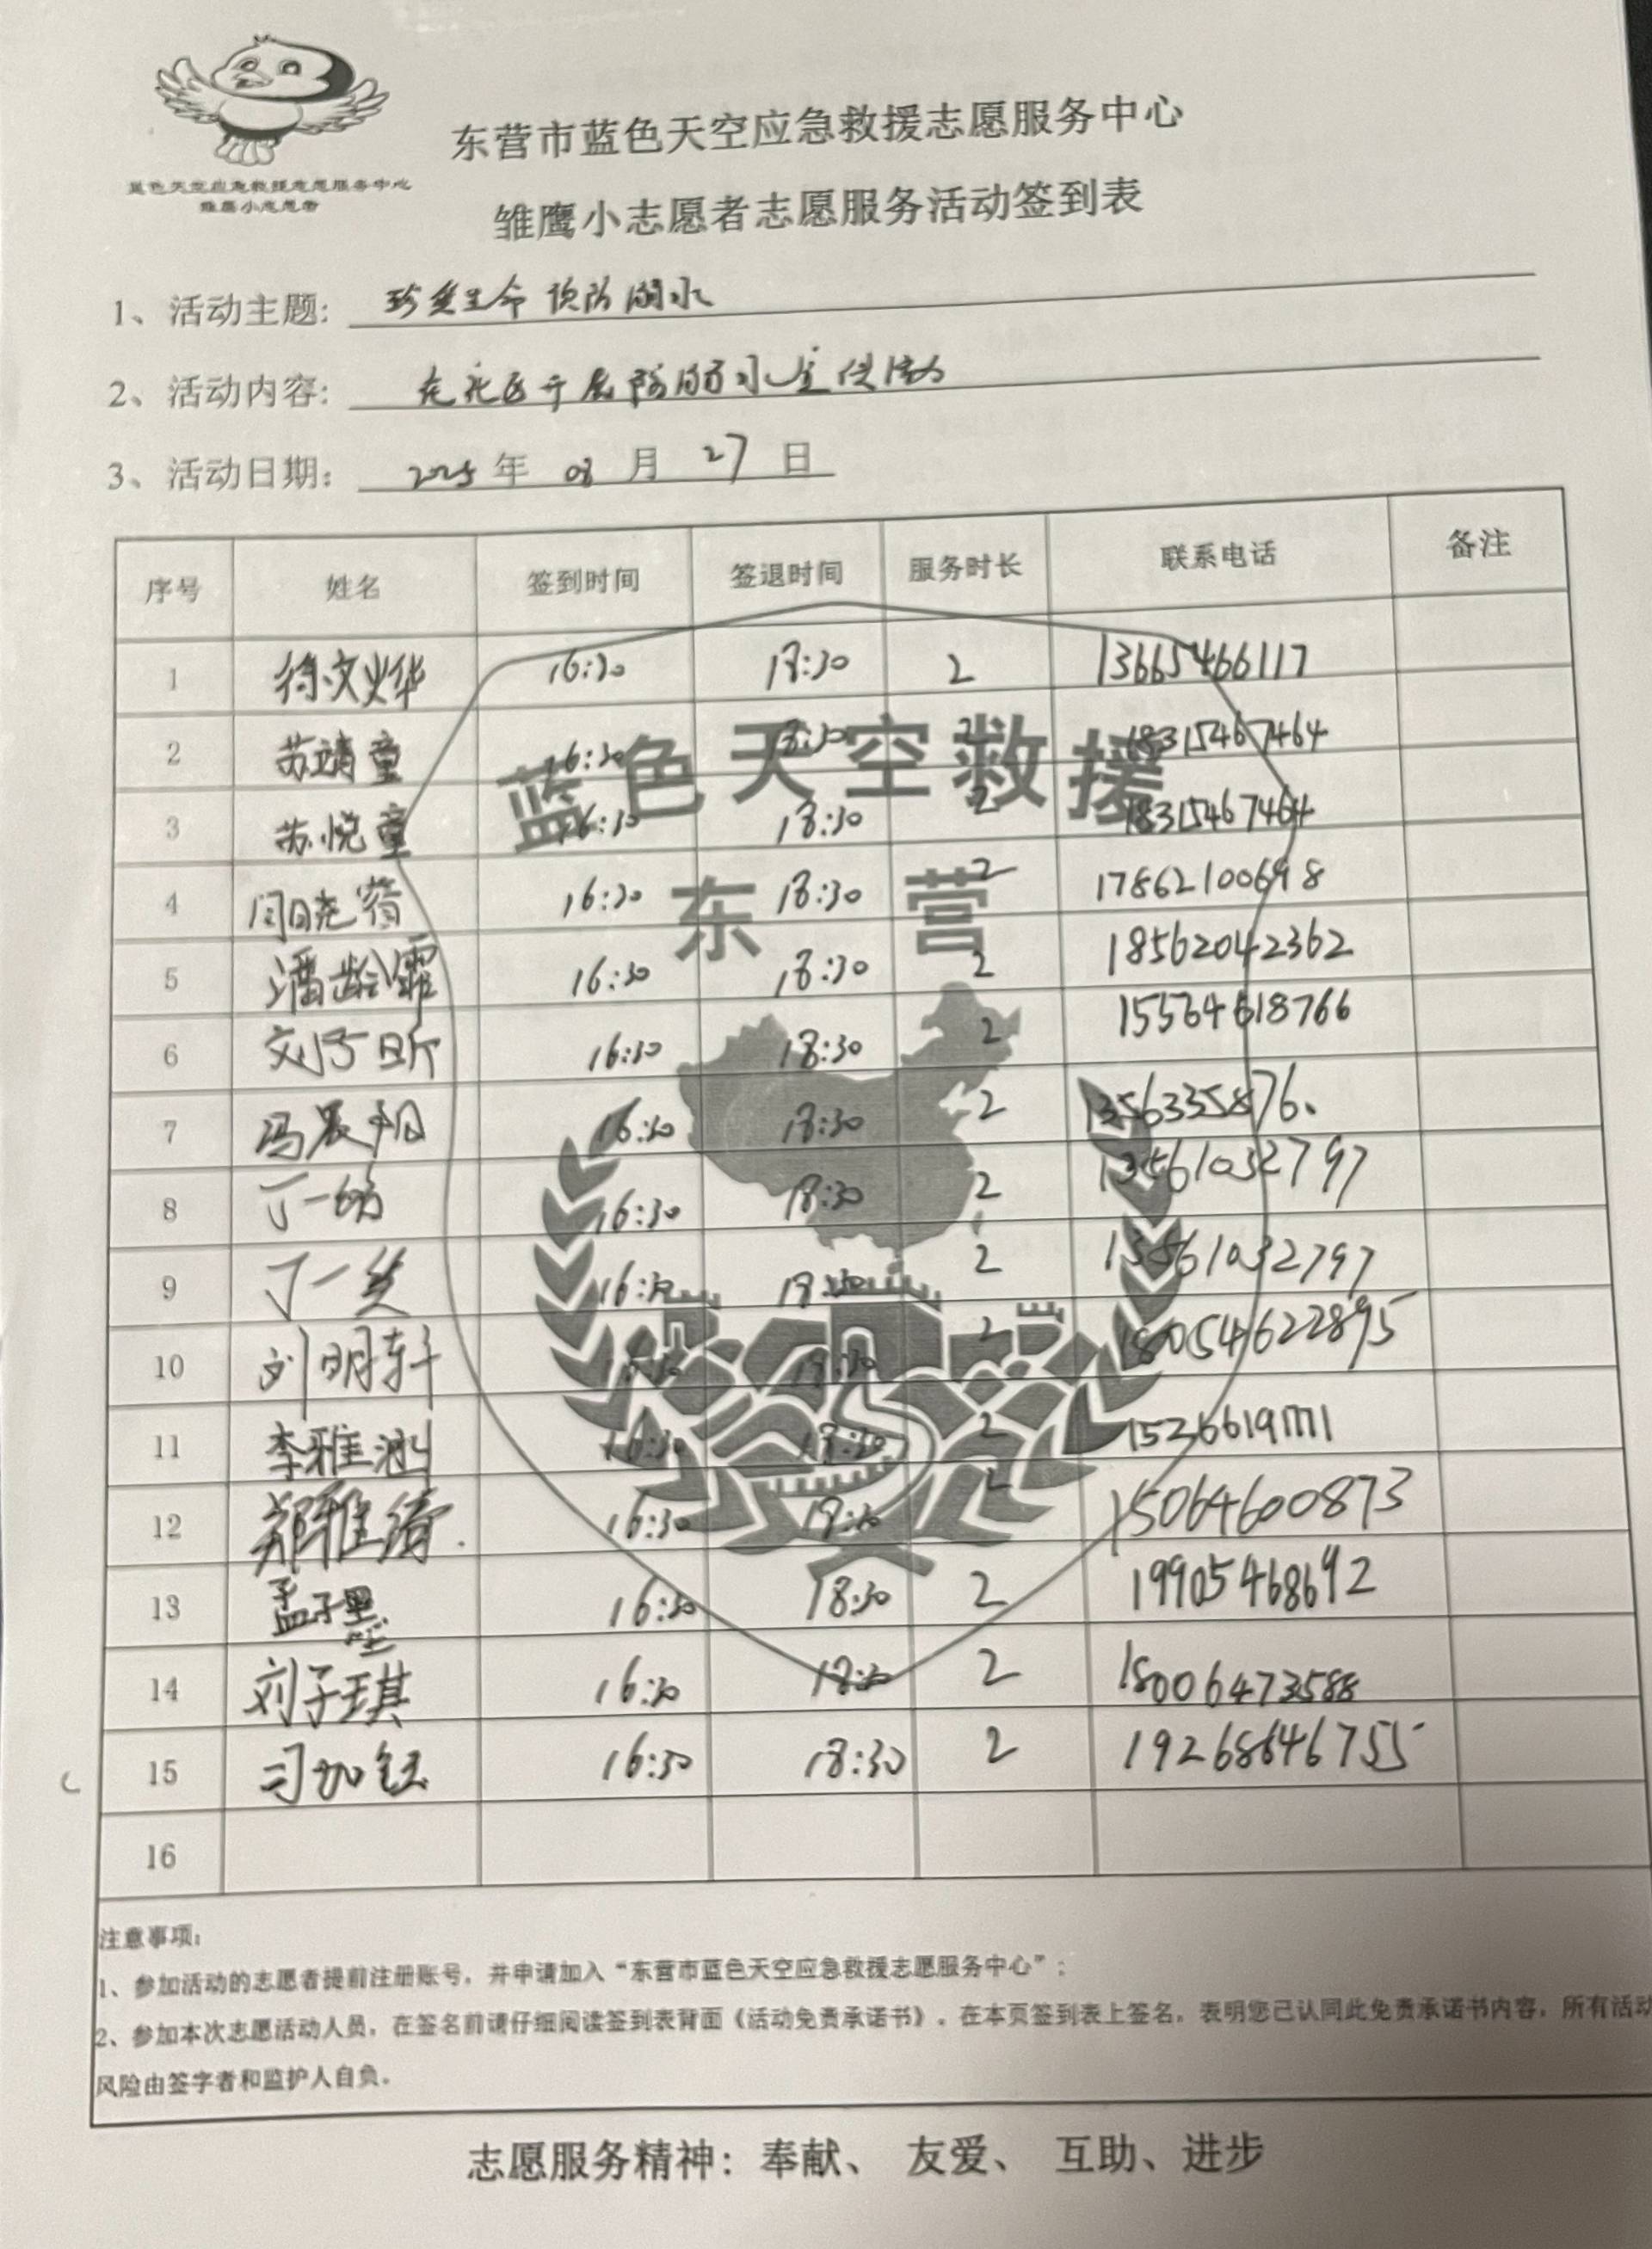 蓝色天空应急救援志愿服务中心
雏鹰小志愿者
东营市蓝色天空应急救援志愿服务中心
雏鹰小志愿者志愿服务活动签到表
1、活动主题: 珍爱生命 预防溺水
2、活动内容: 在社区开展防溺水宣传活动
3、活动日期: 2025 年 08 月 27 日
序号 姓名 签到时间 签退时间 服务时长 联系电话 备注
1 徐文烨 16:30 18:30 2 13665466117
2 苏靖童 16:30 18:30 2 18315467464
3 苏悦童 16:30 18:30 2 18315467464
4 闫晓蓓 16:30 18:30 2 17862100698
5 潘龄霏 16:30 18:30 2 18562042362
6 刘子昕 16:30 18:30 2 15564618766
7 冯晨 16:30 18:30 2
8 丁一 16:30 18:30 2 13561032797
9 丁一 16:30 18:30 2 13561032797
10 刘明轩 16:30 18:30 2 18054622895
11 李雅 16:30 18:30 2
12 郑雅绮 16:30 18:30 2 15064600873
13 孟子墨 16:30 18:30 2 19905468692
14 刘子琪 16:30 18:30 2 18006473588
15 司加钰 16:30 18:30 2 19268646755
16
蓝色天空救援
东营
注意事项:
1、参加活动的志愿者提前注册账号，并申请加入“东营市蓝色天空应急救援志愿服务中心”;
2、参加本次志愿活动人员，在签名前请仔细阅读签到表背面《活动免责承诺书》。在本页签到表上签名，表明您已认同此免责承诺书内容，所有活动
风险由签字者和监护人自负。
志愿服务精神: 奉献、 友爱、 互助、进步